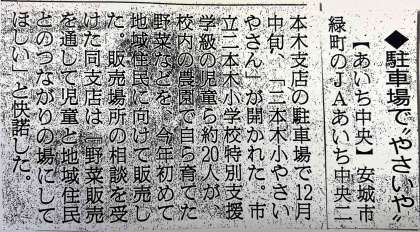 ◆駐車場で〝やさいや〟
【あいち中央】安城市
緑町のJAあいち中央二
本木支店の駐車場で12月
中旬、「二本木小やさい
やさん」が開かれた。市
立二本木小学校特別支援
学級の児童ら約20人が
校内の農園で自ら育てた
野菜などを、今年初めて
地域住民に向けて販売し
た。販売場所の相談を受
けた同支店は「野菜販売
を通して児童と地域住民
とのつながりの場にして
ほしい」と快諾した。